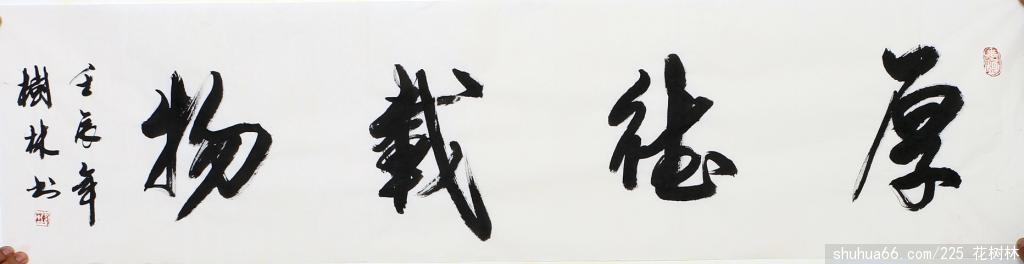 厚德載物
壬辰年
樹林书
shuhua66.com/225 花树林